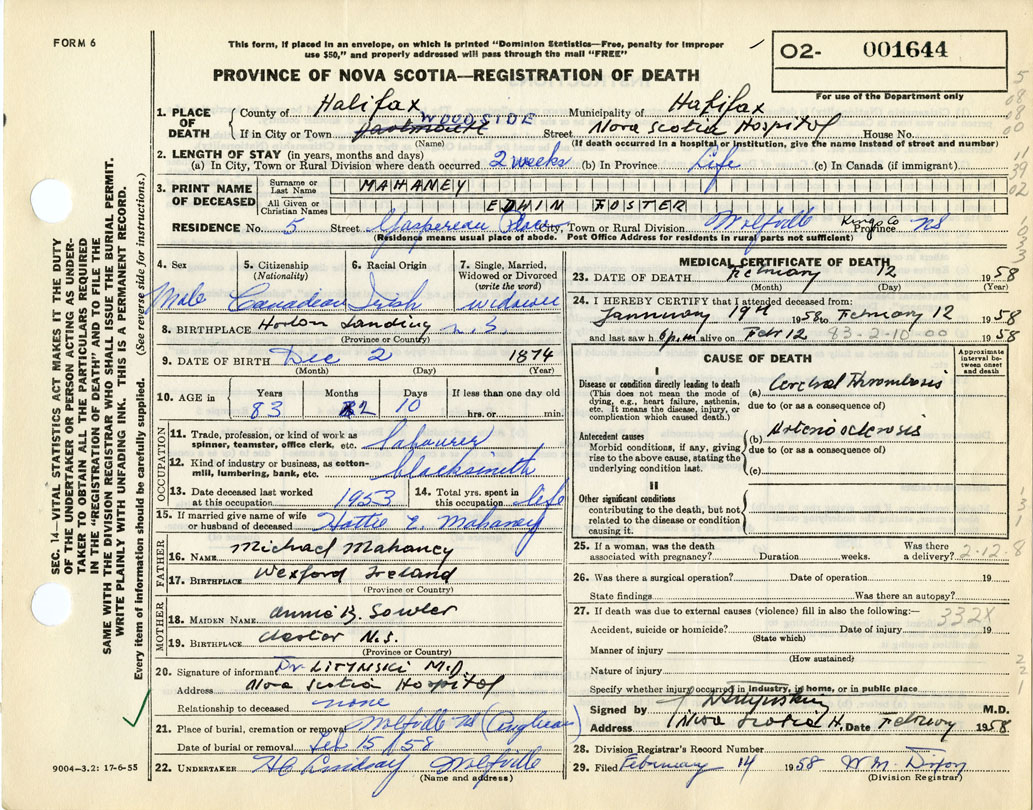 FORM 6
This form, if placed in an envelope, on which is printed "Dominion Statistics—Free, penalty for improper
use $50," and properly addressed will pass through the mail "FREE"
O2- 001644
For use of the Department only
PROVINCE OF NOVA SCOTIA—REGISTRATION OF DEATH
1. PLACE OF DEATH
County of Halifax Municipality of Halifax
If in City or Town Dartmouth WOODSIDE Street Nova Scotia Hospital House No.
(Name) (If death occurred in a hospital or institution, give the name instead of street and number)
2. LENGTH OF STAY (in years, months and days)
(a) In City, Town or Rural Division where death occurred 2 weeks (b) In Province Life (c) In Canada (if immigrant)
3. PRINT NAME OF DECEASED
Surname or Last Name MAHANEY
All Given or Christian Names EDWIN FOSTER
RESIDENCE No. 5 Street Gaspereau Place City, Town or Rural Division Wolfville Kings Co Province NS
(Residence means usual place of abode. Post Office Address for residents in rural parts not sufficient)
4. Sex
Male
5. Citizenship
(Nationality)
Canadian
6. Racial Origin
Irish
7. Single, Married,
Widowed or Divorced
(write the word)
widower
8. BIRTHPLACE Horton Landing N.S.
(Province or County)
9. DATE OF BIRTH Dec 2 1874
(Month) (Day) (Year)
10. AGE in
Years 83
Months 2
Days 10
If less than one day old
hrs. or min.
OCCUPATION
11. Trade, profession, or kind of work as
spinner, teamster, office clerk, etc. labourer
12. Kind of industry or business, as cotton-
mill, lumbering, bank, etc. blacksmith
13. Date deceased last worked
at this occupation 1953
14. Total yrs. spent in
this occupation life
15. If married give name of wife
or husband of deceased Hattie E. Mahaney
FATHER
16. NAME Michael Mahaney
17. BIRTHPLACE Wexford Ireland
(Province or Country)
MOTHER
18. MAIDEN NAME Annie B. Sowler
19. BIRTHPLACE Chester N.S.
(Province or Country)
20. Signature of informant Dr. LITYNSKI M.D.
Address Nova Scotia Hospital
Relationship to deceased none
21. Place of burial, cremation or removal Wolfville NS
Date of burial or removal Feb 15/58
22. UNDERTAKER HC Lindsay Wolfville
(Name and address)
MEDICAL CERTIFICATE OF DEATH
23. DATE OF DEATH February 12 1958
(Month) (Day) (Year)
24. I HEREBY CERTIFY that I attended deceased from:
January 19th 1958 to February 12 1958
and last saw h. alive on Febr 12 1958
83-2-10 00
CAUSE OF DEATH
Approximate interval between onset and death
I
Disease or condition directly leading to death
(This does not mean the mode of
dying, e.g., heart failure, asthenia,
etc. It means the disease, injury, or
complication which caused death.)
(a) Cerebral Thrombosis
due to (or as a consequence of)
Antecedent causes
Morbid conditions, if any, giving
rise to the above cause, stating the
underlying condition last.
(b) Arteriosclerosis
due to (or as a consequence of)
(c)
II
Other significant conditions
contributing to the death, but not
related to the disease or condition
causing it.
25. If a woman, was the death
associated with pregnancy? Duration weeks. Was there
a delivery?
2-12-8
26. Was there a surgical operation? Date of operation 19
State findings Was there an autopsy?
27. If death was due to external causes (violence) fill in also the following:—
332X
Accident, suicide or homicide? Date of injury 19
(State which)
Manner of injury
(How sustained)
Nature of injury
Specify whether injury occurred in industry, in home, or in public place
Signed by M.D.
Address Nova Scotia H. Date February 1958
28. Division Registrar's Record Number
29. Filed February 14 1958 W.M. Dixon
(Division Registrar)
SEC. 14—VITAL STATISTICS ACT MAKES IT THE DUTY
OF THE UNDERTAKER OR PERSON ACTING AS UNDER-
TAKER TO OBTAIN ALL THE PARTICULARS REQUIRED
IN THE "REGISTRATION OF DEATH" AND TO FILE THE
SAME WITH THE DIVISION REGISTRAR WHO SHALL ISSUE THE BURIAL PERMIT.
WRITE PLAINLY WITH UNFADING INK. THIS IS A PERMANENT RECORD.
Every item of information should be carefully supplied. (See reverse side for instructions.)
9004-3.2: 17-6-55